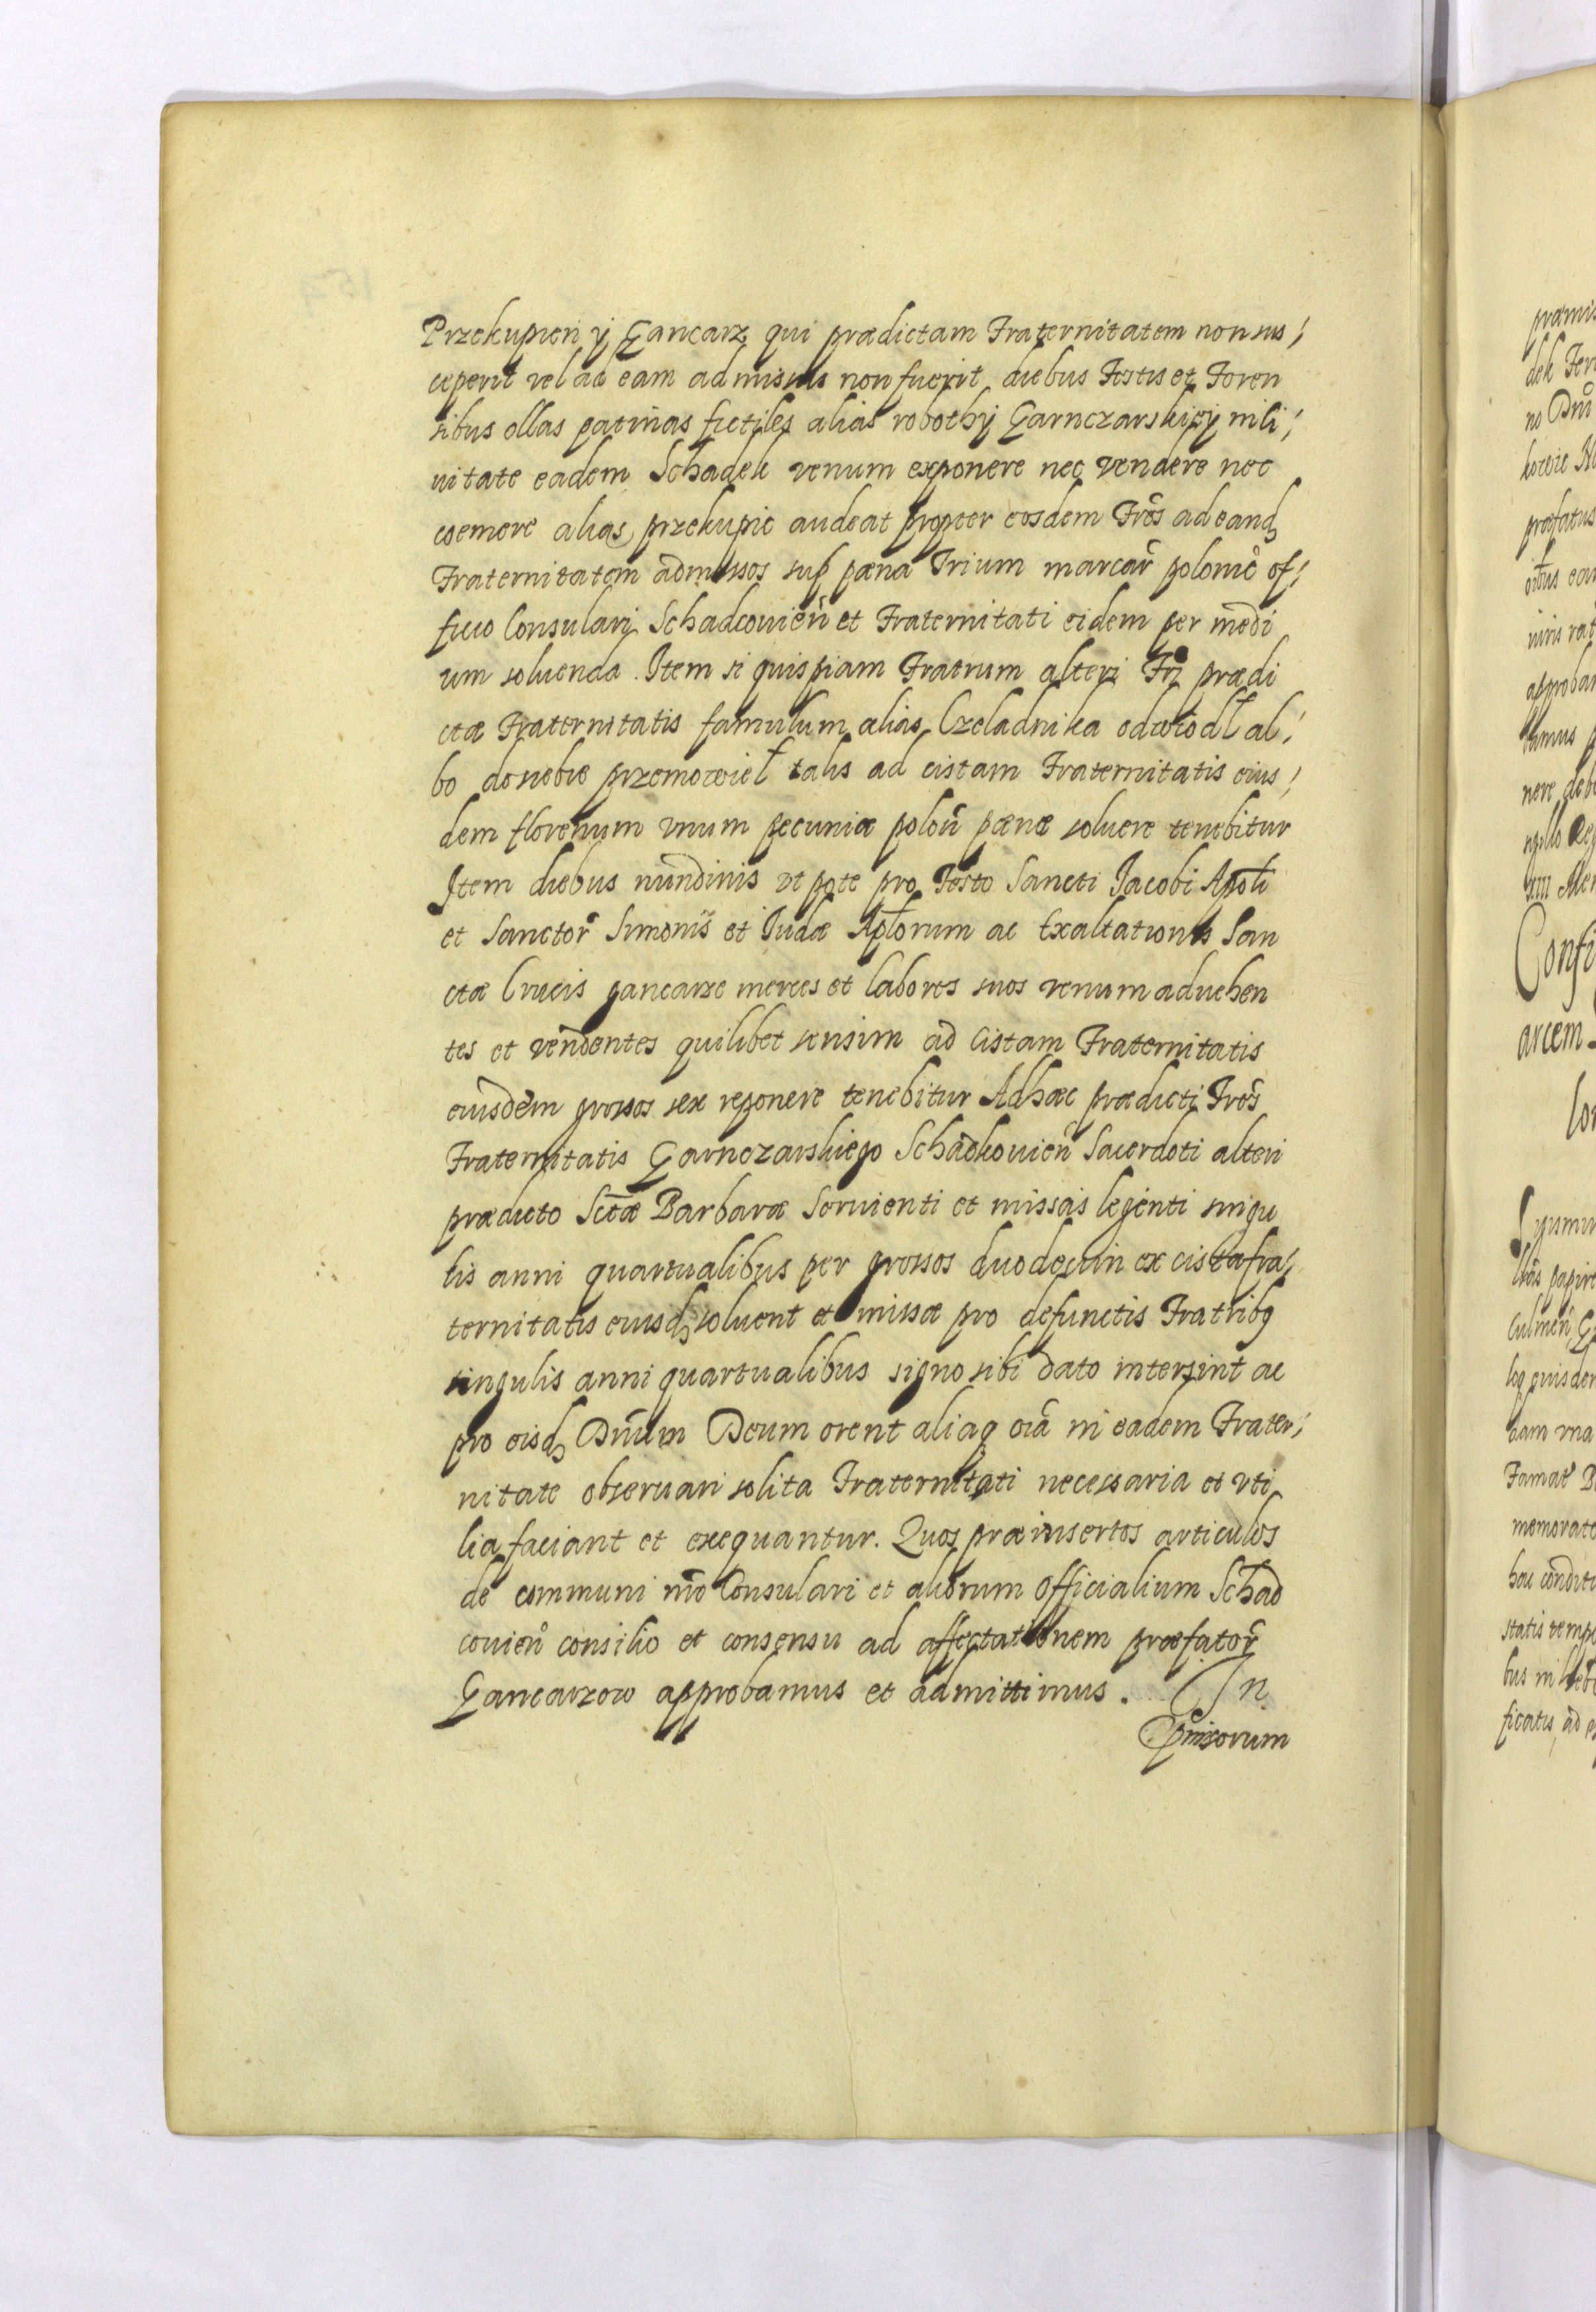 Przekupien ÿ Gancarz, qui prædictam Fraternitatem non sus,
ceperit vel ad eam admissus non fuerit, diebus Festis et Foren
sibus ollas patinas fictiles alias robothÿ Garnczarskieÿ in Ci,
uitate eadem Schadek venum exponere nec vendere nec
coemere alias przekupic audeat propter eosdem Frẽs ad eandꝫ
Fraternitatem admissos sub pæna Trium marcaȓ polonic̃ of,
ficio Consulari Schadcouień et Fraternitati eidem per medi
um soluenda. Item si quispiam Fratrum alteri Fr̃i prædi
ctæ Fraternitatis famulum alias Czeladnika odwiodł al,
bo do siebie przemowieł talis ad cistam Fraternitatis eius,
dem florenum vnum pecuniæ poloń pænæ soluere tenebitur
Item diebus nundinis vt pote pro Festo Sancti Jacobi Apol̃i
et Sanctoȓ Simonis et Iudæ Apl̃orum ac Exaltationis San
ctæ Crucis gancarze merces et labores suos venum aduehen
tes et vendentes quilibet sensim ad Cistam Fraternitatis
eiusdem grossos sex reponere tenebitur Adhæc prædicti Frẽs
Fraternitatis Garnczarskiego Schadkouień Sacerdoti alteri
prædicto Sctæ Barbaræ Seruienti et missas legenti singu
lis anni quartualibus per grossos duodecim ex cista fra,
ternitatis eiusdꝫ soluent et missæ pro defunctis Fratribꝗ
singulis anni quartualibus signo sibi dato intersint ac
pro eisdꝫ Dñum Deum orent aliaqꝫ oĩa in eadem Frater,
nitate obseruari solita Fraternitati necessaria et vti
lia faciant et exequantur. Quos præinsertos articulos
de communi nr̃o Consulari et aliorum Officialium Schad
couień consilio et consensu ad affectationem præfatoȓ
Gancarzow approbamus et admittimus. In
Præmissorum